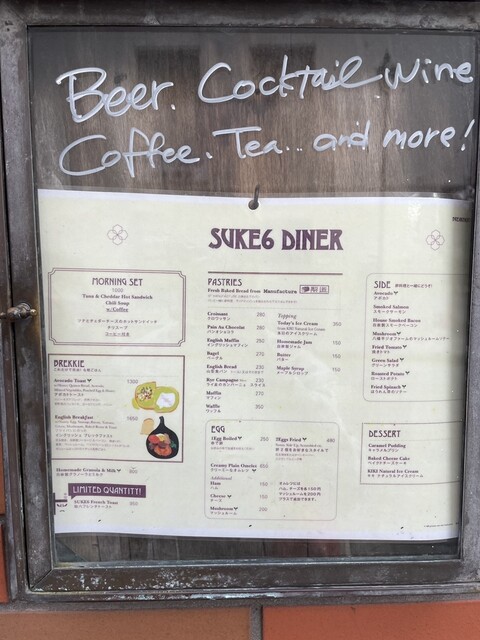 Beer. Cocktail. Wine
Coffee. Tea... and more!
SUKE6 DINER
MORNING SET
1000
Tuna & Cheddar Hot Sandwich
Chili Soup
w/Coffee
ツナとチェダーチーズのホットサンドイッチ
チリスープ
コーヒー付き
BREKKIE
Avocado Toast
1300
アボカドトースト
English Breakfast
イングリッシュ ブレックファスト
Homemade Granola & Milk
800
LIMITED QUANTITY!
SUKE6 French Toast
PASTRIES
Fresh Baked Bread from Manufacture
Croissant 280
クロワッサン
Pain Au Chocolat 280
パンオショコラ
English Muffin 260
イングリッシュマフィン
Bagel 270
ベーグル
English Bread 230
Rye Campagne 230
Maffin 270
マフィン
Waffle 300
ワッフル
Topping
Today's Ice Cream 350
本日のアイスクリーム
Homemade Jam 150
自家製ジャム
Butter 150
バター
Maple Syrup 150
メープルシロップ
EGG
1Egg Boiled 250
ゆで卵
2Eggs Fried 480
Creamy Plain Omelet 650
クリーミーなオムレツ
Additional
Ham 150
ハム
Cheese 150
チーズ
Mushroom 200
マッシュルーム
オムレツには
ハム、チーズを各150円
マッシュルームを200円
プラスで追加できます。
SIDE
Avocado
アボカド
Smoked Salmon
スモークサーモン
House Smoked Bacon
自家製スモークベーコン
Mushroom
Fried Tomato
焼きトマト
Green Salad
グリーンサラダ
Roasted Potato
ローストポテト
Fried Spinach
ほうれん草のソテー
DESSERT
Caramel Pudding
キャラメルプリン
Baked Cheese Cake
ベイクドチーズケーキ
KIKI Natural Ice Cream
キキ ナチュラルアイスクリーム